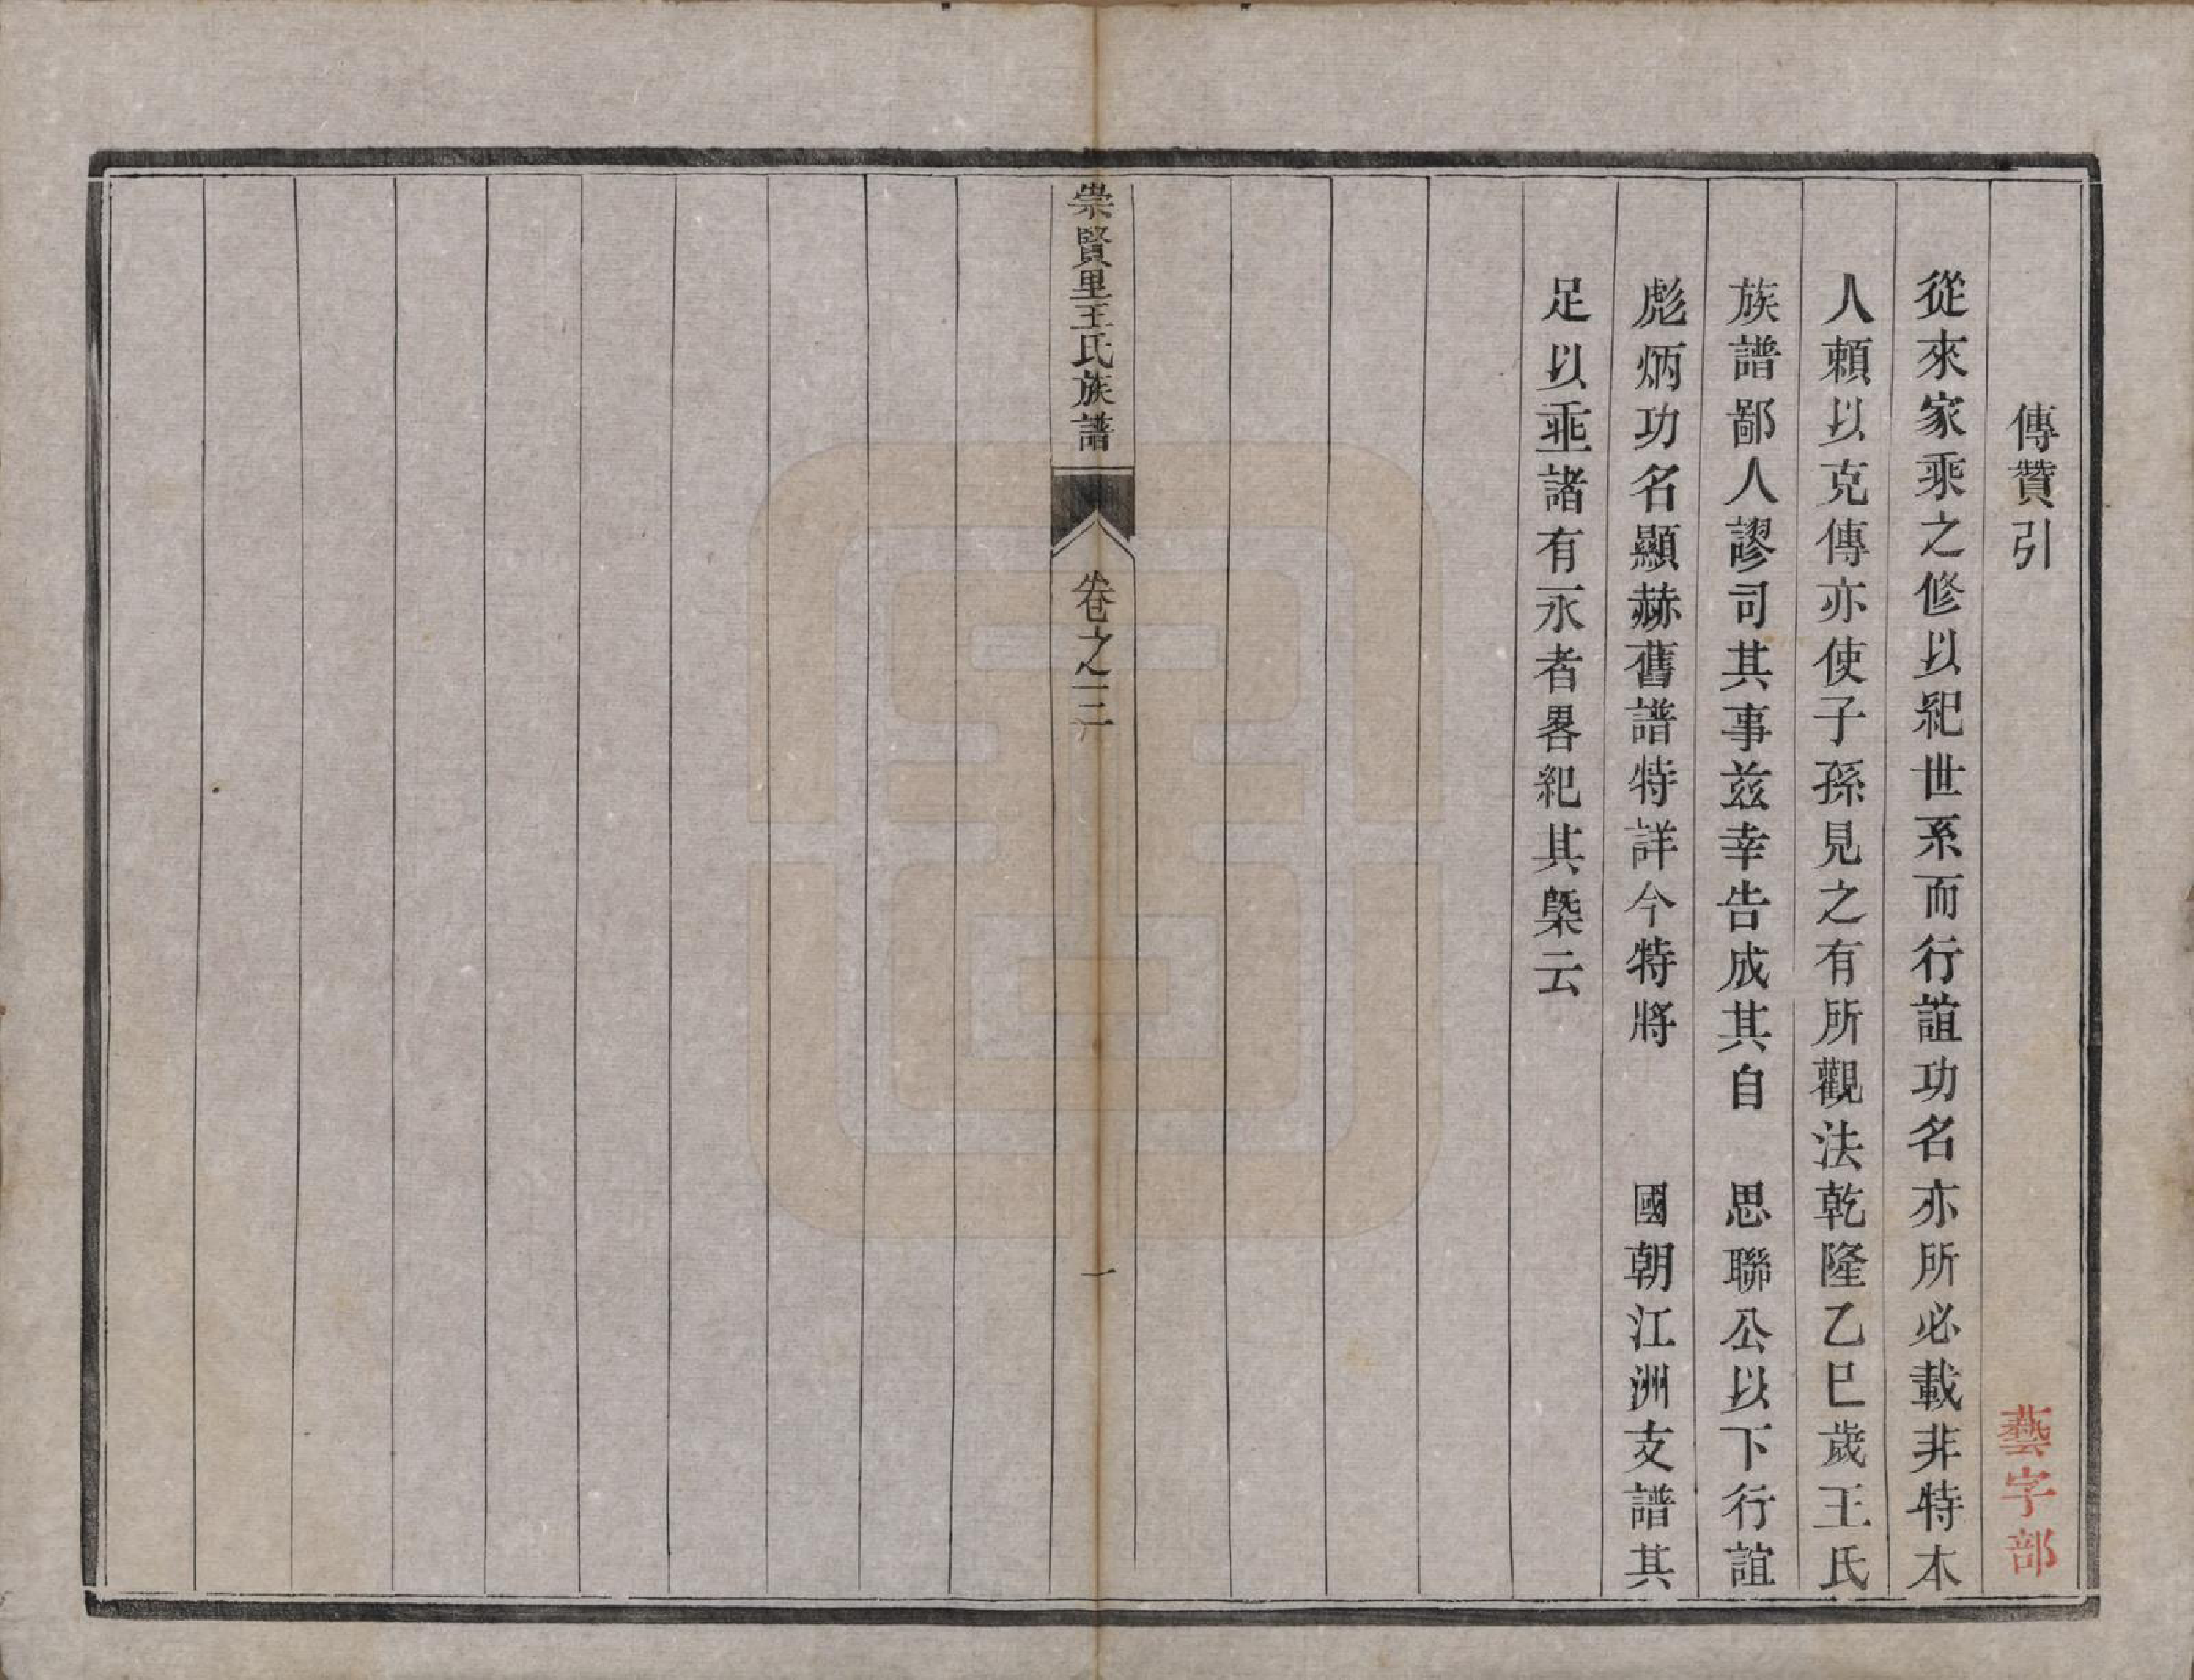 傳贊引
藝字部
從來家乘之修以紀世系而行誼功名亦所必載非特本
人頼以克傳亦使子孫見之有所觀法乾隆乙巳歲王氏
族譜鄙人謬司其事兹幸告成其自 思聯公以下行誼
彪炳功名顯赫舊譜特詳今特將 國朝江洲支譜其
足以乖諸有永者畧紀其槩云
崇賢里王氏族譜 卷之三 一